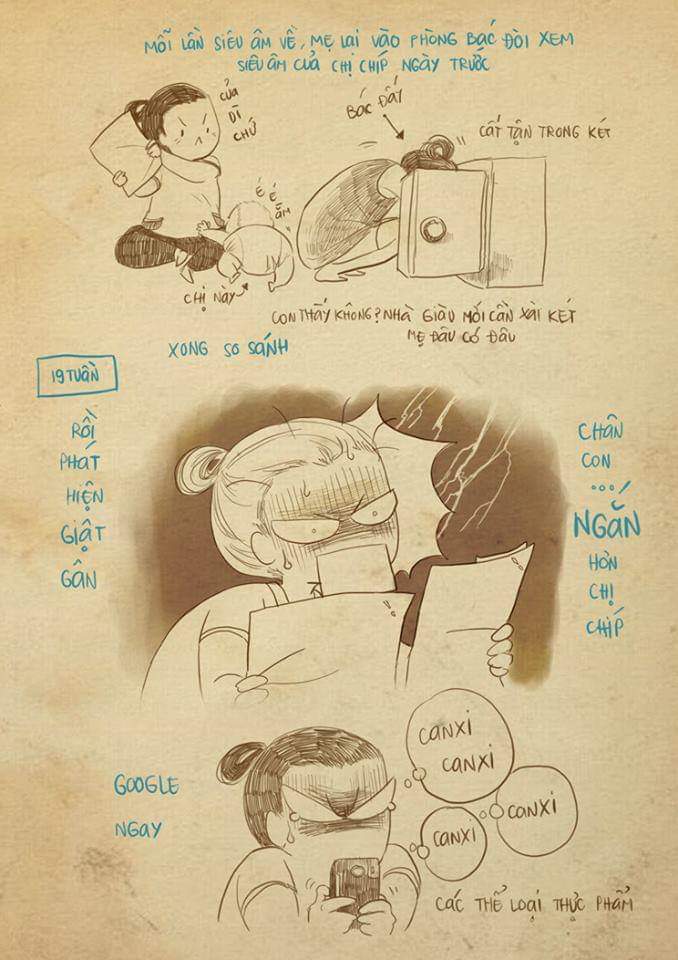 MỖI LẦN SIÊU ÂM VỀ, MẸ LẠI VÀO PHÒNG BÁC ĐÒI XEM
SIÊU ÂM CỦA CHỊ CHÍP NGÀY TRƯỚC
CỦA
DÌ
CHỨ
BÁC ĐẤY
CẤT TẬN TRONG KÉT
É
É
É
ẦM
CHỊ NÀY
CON THẤY KHÔNG? NHÀ GIÀU MỚI CẦN XÀI KÉT
MẸ ĐÂU CÓ ĐÂU
XONG SO SÁNH
19 TUẦN
RỒI
PHÁT
HIỆN
GIẬT
GÂN
CHÂN
CON
...
NGẮN
HƠN
CHỊ
CHÍP
GOOGLE
NGAY
CANXI
CANXI
CANXI
CANXI
CÁC THỂ LOẠI THỰC PHẨM